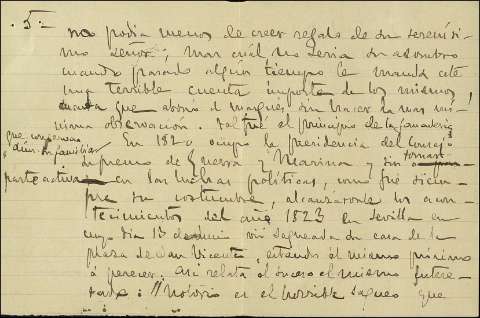 . 5 =
no podia menos de creer regalo de su serenisi-
mo señor; mas cuál no seria su asombro
cuando pasado algún tiempo le manda este
una terrible cuenta importe de los mismos,
cuenta que abonó el marqués sin hacer la mas mí-
nima observacion. tal fué el principio de la ganaderia
que conservan aún sus familias
En 1820 ocupo la presidencia del Consejo
Supremo de Guerra y Marina y sin tomar
parte activa en las luchas políticas, como fué siem-
pre su costumbre, alcanzaronle los acon-
tecimientos del año 1823 en Sevilla en
cuyo dia 13 de Junio vió saqueada su casa de la
plaza de San Vicente, estando él mismo próximo
á perecer. Asi relata el suceso el mismo intere-
sado: "Notorio es el horrible saqueo que